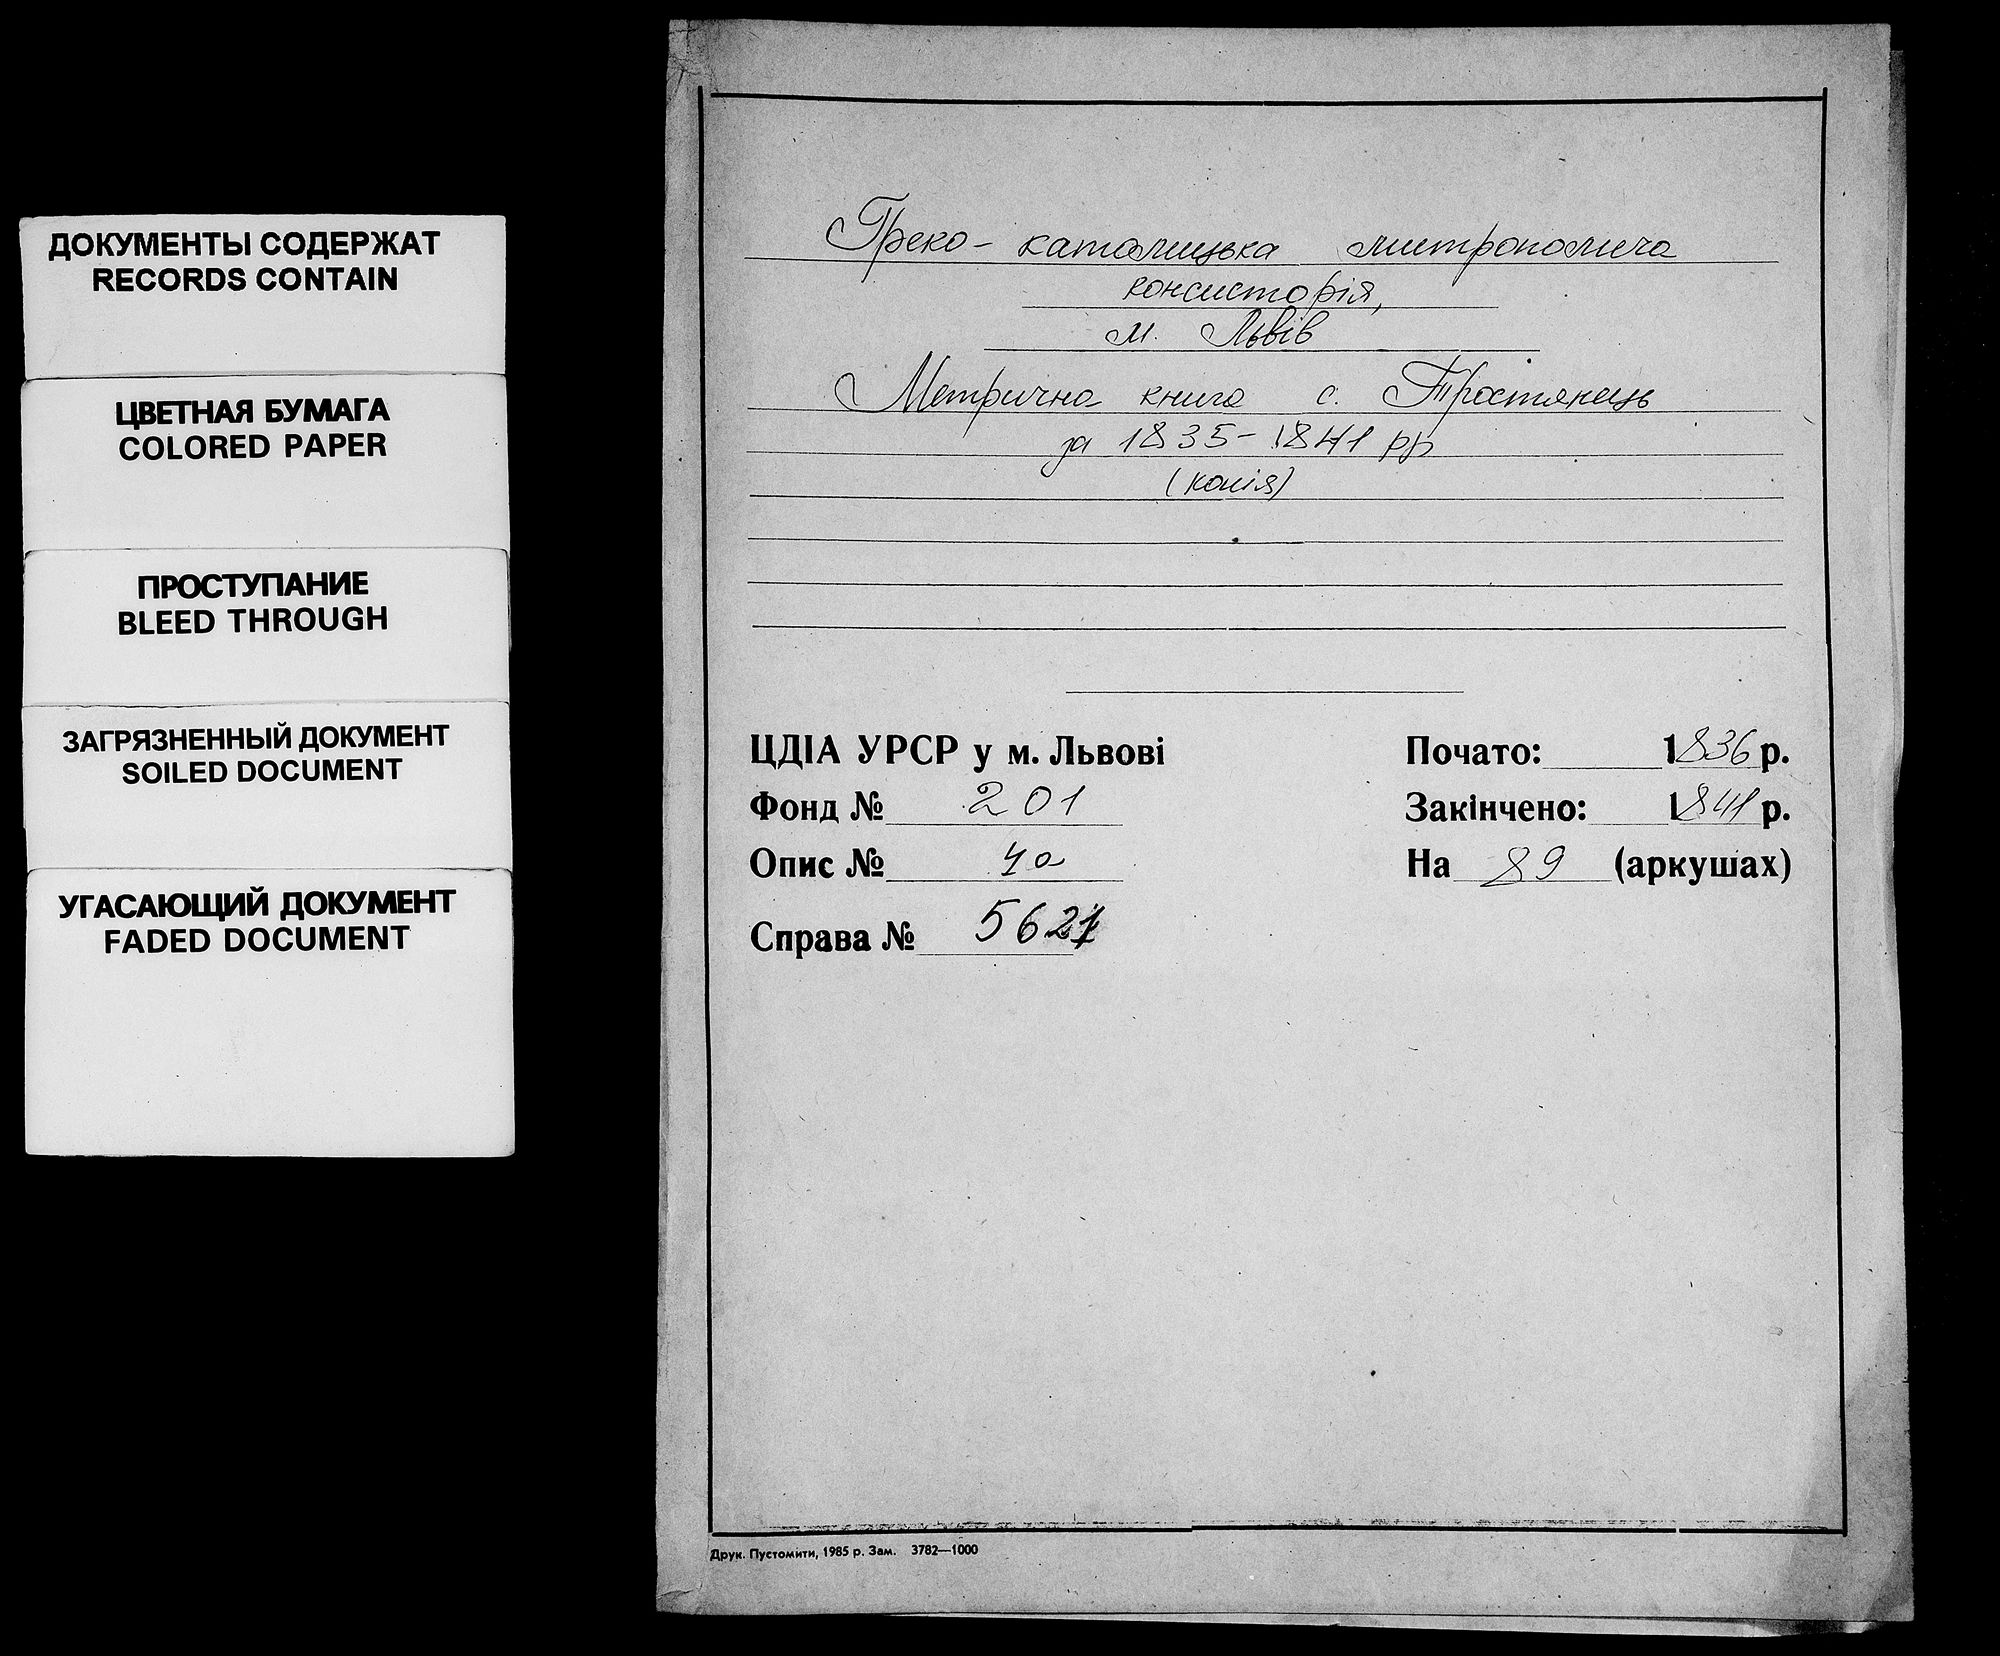 ДОКУМЕНТЫ СОДЕРЖАТ
RECORDS CONTAIN
ЦВЕТНАЯ БУМАГА
COLORED PAPER
ПРОСТУПАНИЕ
BLEED THROUGH
ЗАГРЯЗНЕННЫЙ ДОКУМЕНТ
SOILED DOCUMENT
УГАСАЮЩИЙ ДОКУМЕНТ
FADED DOCUMENT
Греко-католицька митрополича
консисторія,
м. Львів
Метрична книга с. Тростянець
за 1835-1841 рр
(копія)
ЦДІА УРСР у м. Львові
Фонд № 201
Опис № 4а
Справа № 5621
Почато: 1836 р.
Закінчено: 1841 р.
На 89 (аркушах)
Друк. Пустомити, 1985 р. Зам. 3782—1000